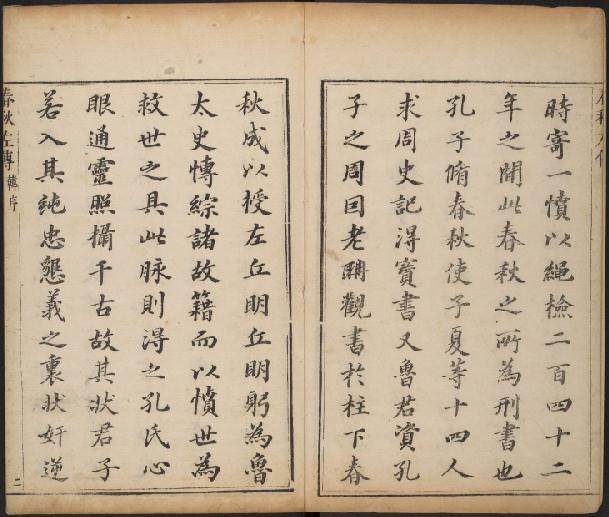 時寄一憤以繩檢二百四十二
年之間此春秋之所為刑書也
孔子脩春秋使子夏等十四人
求周史記得寶書又魯君資孔
子之周因老聃觀書於柱下春
秋成以授左丘明丘明躬為魯
太史博綜諸故籍而以憤世為
救世之具此脉則得之孔氏心
眼通靈照攝千古故其狀君子
若入其純忠懇義之裏狀奸逆
春秋左傳 韓序
二